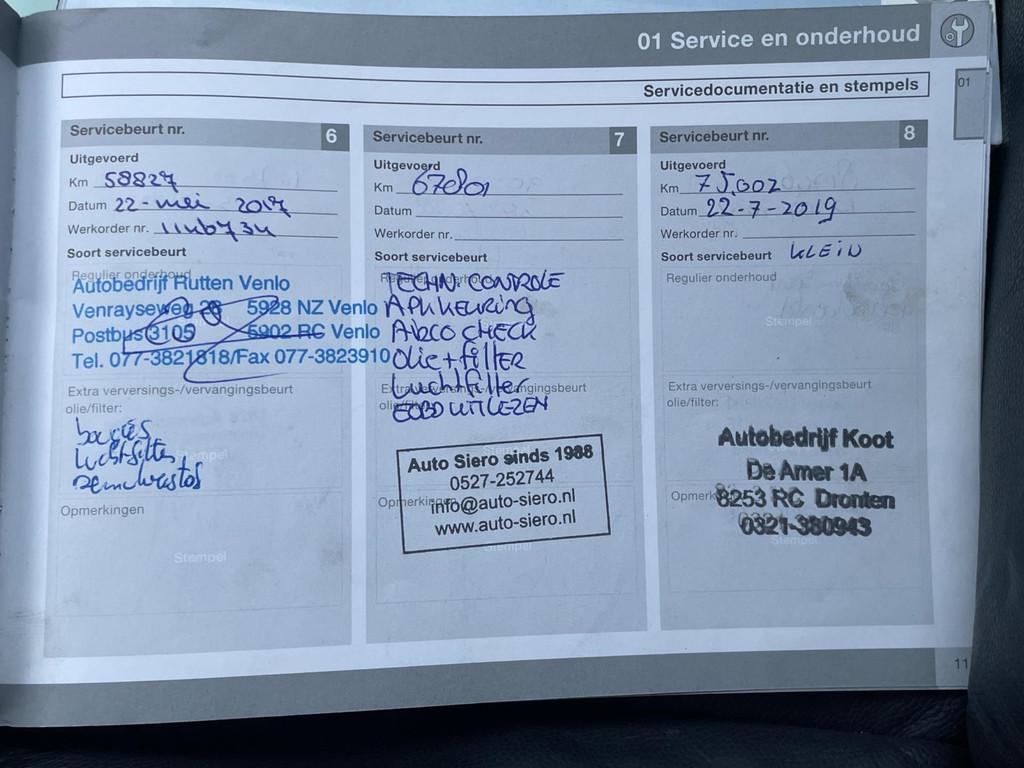 01 Service en onderhoud
01
Servicedocumentatie en stempels
Servicebeurt nr. 6
Uitgevoerd
Km 58827
Datum 22-mei 2017
Werkorder nr.
Soort servicebeurt
Regulier onderhoud
Autobedrijf Rutten Venlo
Venrayseweg 28 5928 NZ Venlo
Postbus 3105 5902 RC Venlo
Tel. 077-3821818/Fax 077-3823910
Extra verversings-/vervangingsbeurt
olie/filter:
bougies
luchtfilter
remvloeistof
Opmerkingen
Stempel
Servicebeurt nr. 7
Uitgevoerd
Km 67801
Datum
Werkorder nr.
Soort servicebeurt
TECHN CONTROLE
APK KEURING
AIRCO CHECK
Olie + filter
Luchtfilter
Extra verversings-/vervangingsbeurt
EOBD UITLEZEN
Auto Siero sinds 1988
0527-252744
Opmerkingen
info@auto-siero.nl
www.auto-siero.nl
Stempel
Servicebeurt nr. 8
Uitgevoerd
Km 75.002
Datum 22-7-2019
Werkorder nr.
Soort servicebeurt KLEIN
Regulier onderhoud
Stempel
Extra verversings-/vervangingsbeurt
olie/filter:
Autobedrijf Koot
De Amer 1A
8253 RC Dronten
0321-380943
Stempel
11